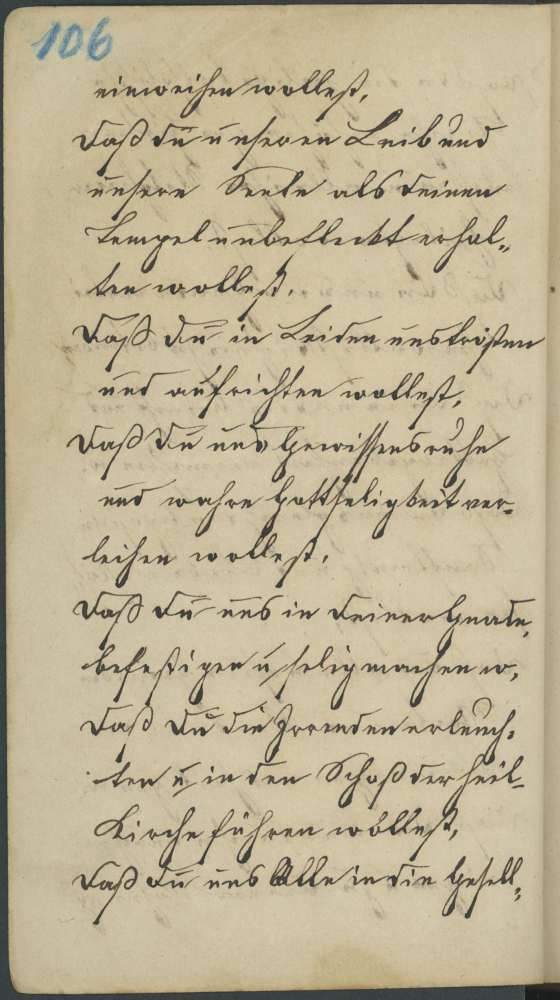 106
einweihen wollest,
Daß du unseren Leib und
unsere Seele als deinen
Tempel unbefleckt erhal„
ten wollest,
Daß du in Leiden uns trösten
und aufrichten wollest,
Daß Du uns Gewissensruhe
und wahre Gottseligkeit ver„
leihen wollest,
Daß du uns in deiner Gnade
befestigen u. selig machen w,
Daß Du die Irrenden erleuch„
ten u. in den Schoß der heil„
Kirche führen wollest,
Daß du uns Alle in die Gesell„